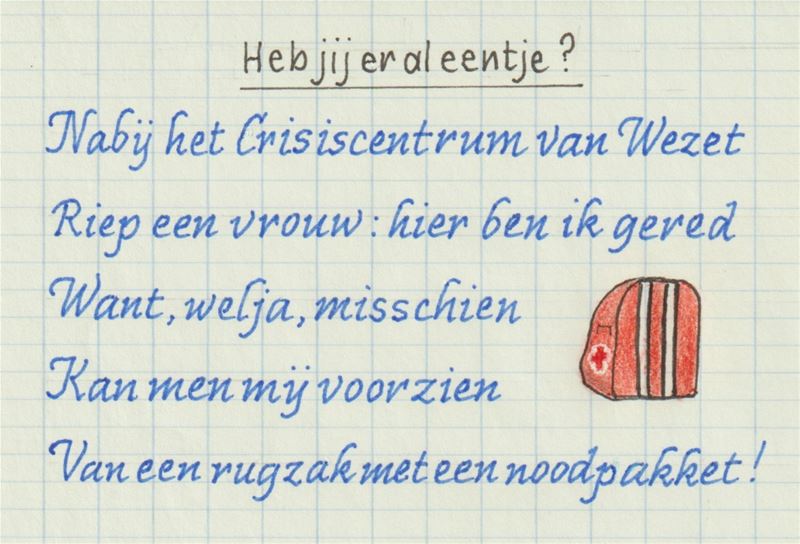 Heb jij er al eentje?
Nabij het Crisiscentrum van Wezet
Riep een vrouw: hier ben ik gered
Want, welja, misschien
Kan men mij voorzien
Van een rugzak met een noodpakket!